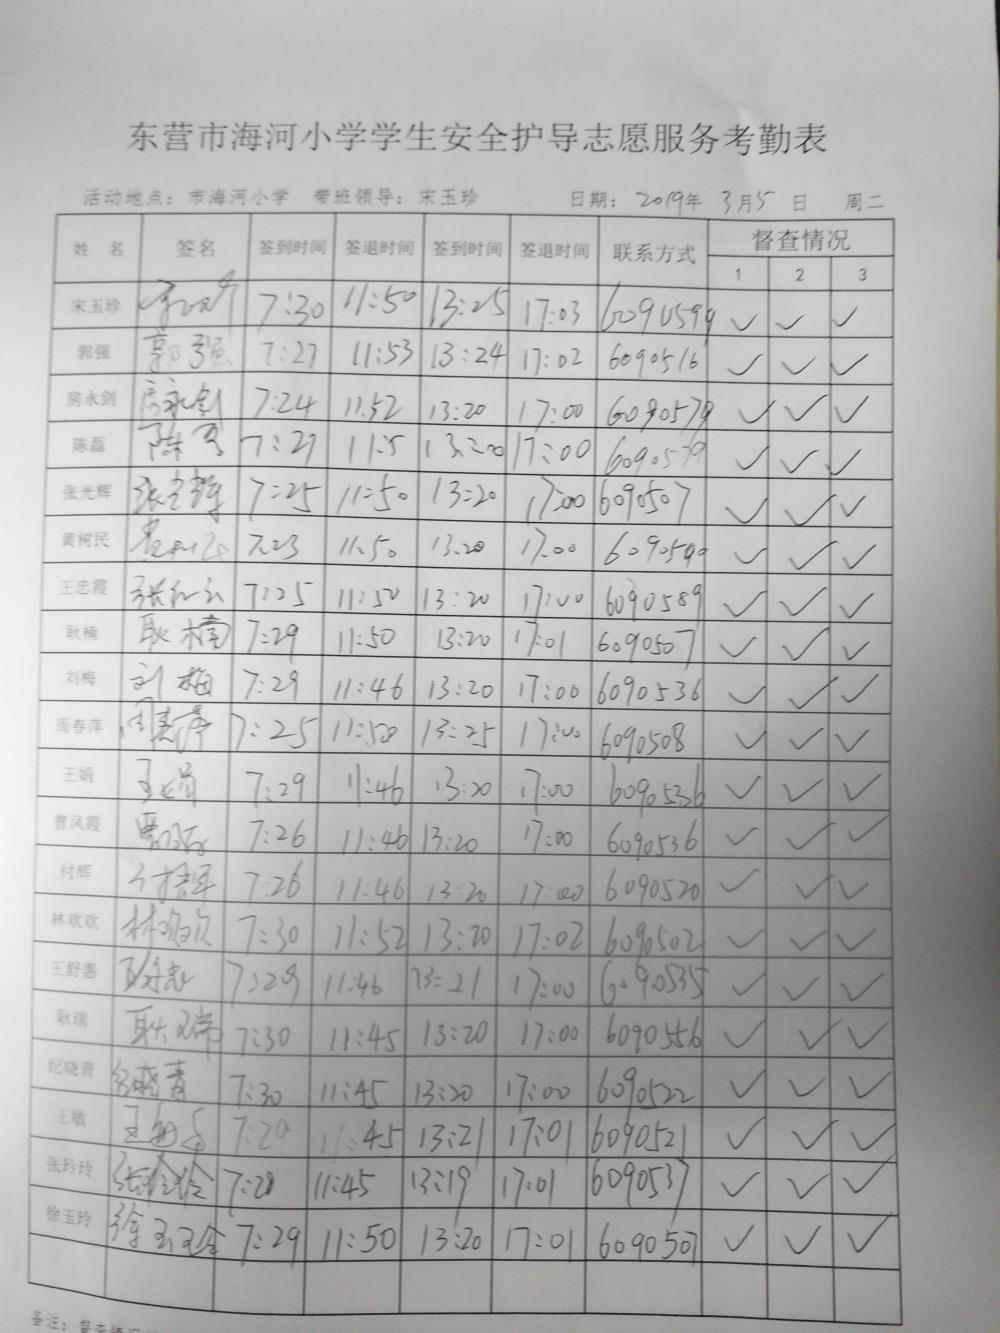 东营市海河小学学生安全护导志愿服务考勤表
活动地点：市海河小学 带班领导：宋玉珍 日期：2019年 3月5日 周二
姓 名 签名 签到时间 签退时间 签到时间 签退时间 联系方式 督查情况
1 2 3
宋玉珍 7:30 11:50 13:25 17:03 6090599 ✓ ✓ ✓
郭强 郭强 7:27 11:53 13:24 17:02 6090516 ✓ ✓ ✓
房永剑 房永剑 7:24 11.52 13:20 17:00 6090579 ✓ ✓ ✓
陈磊 陈磊 7:27 11:5 13:20 17:00 6090579 ✓ ✓ ✓
张光辉 张光辉 7:25 11:50 13:20 17:00 6090507 ✓ ✓ ✓
黄树民 7.23 11.50 13.20 17.00 6090590 ✓ ✓ ✓
王忠霞 7:25 11:50 13:20 17:00 6090589 ✓ ✓ ✓
耿楠 耿楠 7:29 11:50 13:20 17:01 6090507 ✓ ✓ ✓
刘梅 刘梅 7:29 11:46 13:20 17:00 6090536 ✓ ✓ ✓
周春萍 周春萍 7:25 11:50 13:25 17:00 6090508 ✓ ✓ ✓
王娟 王娟 7:29 11:46 13:20 17:00 6090536 ✓ ✓ ✓
曹凤霞 7:26 11:46 13:20 17:00 6090536 ✓ ✓ ✓
付辉 7:26 11:46 13:20 17:00 6090520 ✓ ✓ ✓
林欢欢 林欢欢 7:30 11:52 13:20 17:02 6090502 ✓ ✓ ✓
王舒惠 王舒惠 7:29 11:46 13:21 17:00 6090535 ✓ ✓ ✓
耿瑞 耿瑞 7:30 11:45 13:20 17:00 6090556 ✓ ✓ ✓
纪晓青 纪晓青 7:30 11:45 13:20 17:00 6090522 ✓ ✓ ✓
王敏 7:20 11:45 13:21 17:01 6090521 ✓ ✓ ✓
张玲玲 张玲玲 7:28 11:45 13:19 17:01 6090537 ✓ ✓ ✓
徐玉玲 徐玉玲 7:29 11:50 13:20 17:01 6090507 ✓ ✓ ✓
备注：督查情况